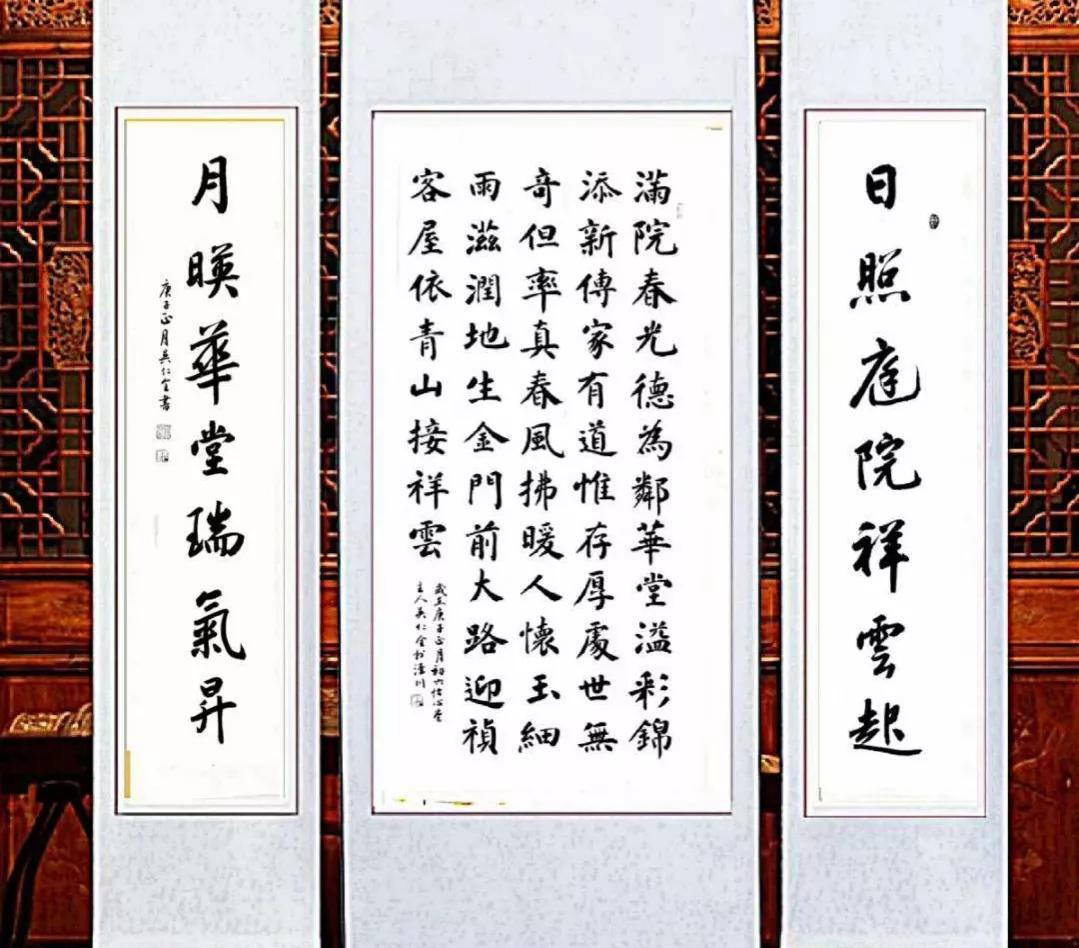 日照庭院祥雲起
滿院春光德為鄰華堂溢彩錦
添新傳家有道惟存厚處世無
奇但率真春風拂暖人懷玉細
雨滋潤地生金門前大路迎禎
客屋依青山接祥雲
歲在庚子正月初六怡心堂
主人吳仁全書
月暎華堂瑞氣昇
庚子正月吳仁全書